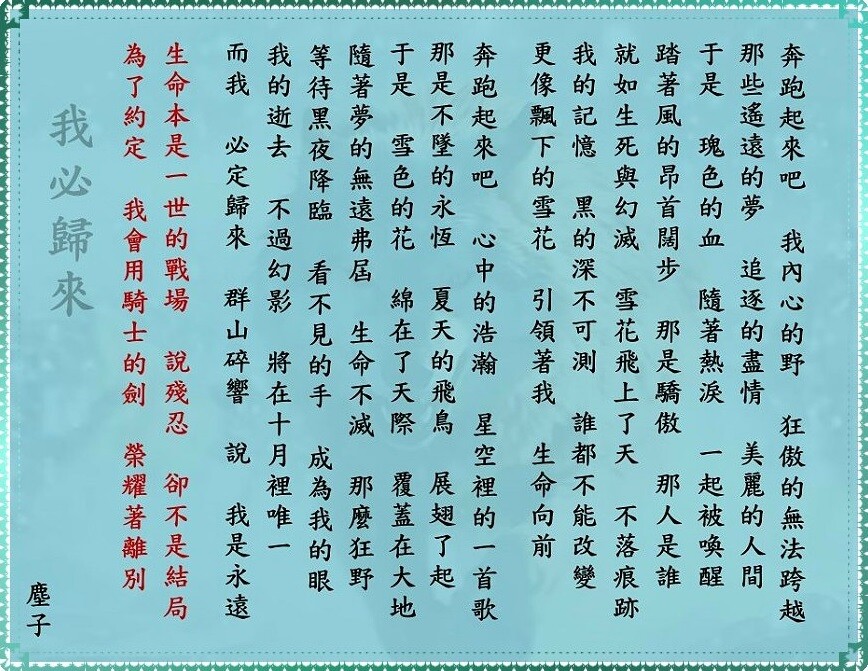 奔跑起來吧　我內心的野　狂傲的無法跨越
那些遙遠的夢　追逐的盡情　美麗的人間
于是　瑰色的血　隨著熱淚　一起被喚醒
踏著風的昂首闊步　那是驕傲　那人是誰
就如生死與幻滅　雪花飛上了天　不落痕跡
我的記憶　黑的深不可測　誰都不能改變
更像飄下的雪花　引領著我　生命向前
奔跑起來吧　心中的浩瀚　星空裡的一首歌
那是不墜的永恆　夏天的飛鳥　展翅了起
于是　雪色的花　綿在了天際　覆蓋在大地
隨著夢的無遠弗屆　生命不滅　那麼狂野
等待黑夜降臨　看不見的手　成為我的眼
我的逝去　不過幻影　將在十月裡唯一
而我　必定歸來　群山碎響　說　我是永遠
生命本是一世的戰場　說殘忍　卻不是結局
為了約定　我會用騎士的劍　榮耀著離別
我必歸來
塵子